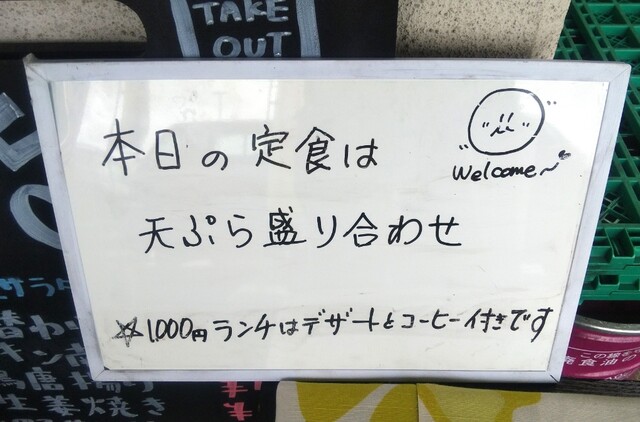 TAKE
OUT
本日の定食は
Welcome~
天ぷら盛り合わせ
☆1,000円ランチはデザートとコーヒー付きです
生姜焼き